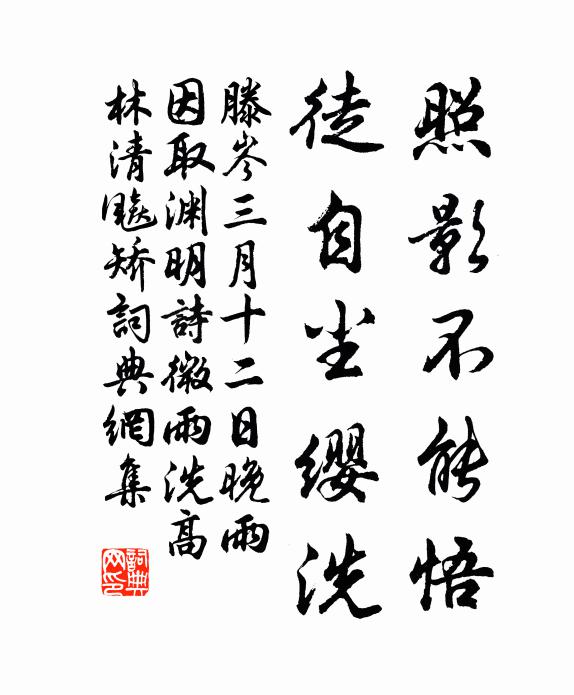 照影不能悟
徒自尘纓洗
滕岑三月十二日晚雨
因取渊明詩微雨洗高
林清飈矫詞典網集
詞典网印